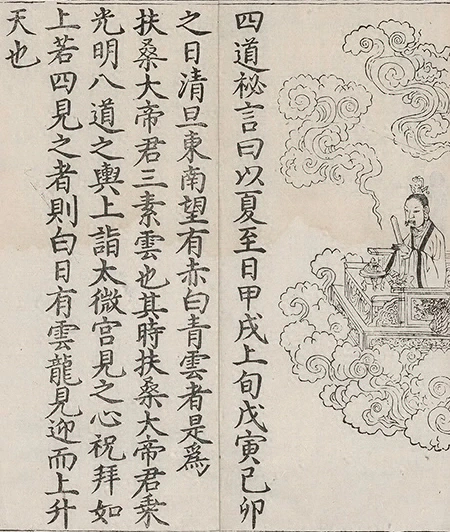 四道秘言曰以夏至日甲戌上旬戊寅己卯
之日清旦東南望有赤白青雲者是爲
扶桑大帝君三素雲也其時扶桑大帝君乗
光明八道之輿上詣太微宫見之心祝拜如
上若四見之者則白日有雲龍見迎而上升
天也